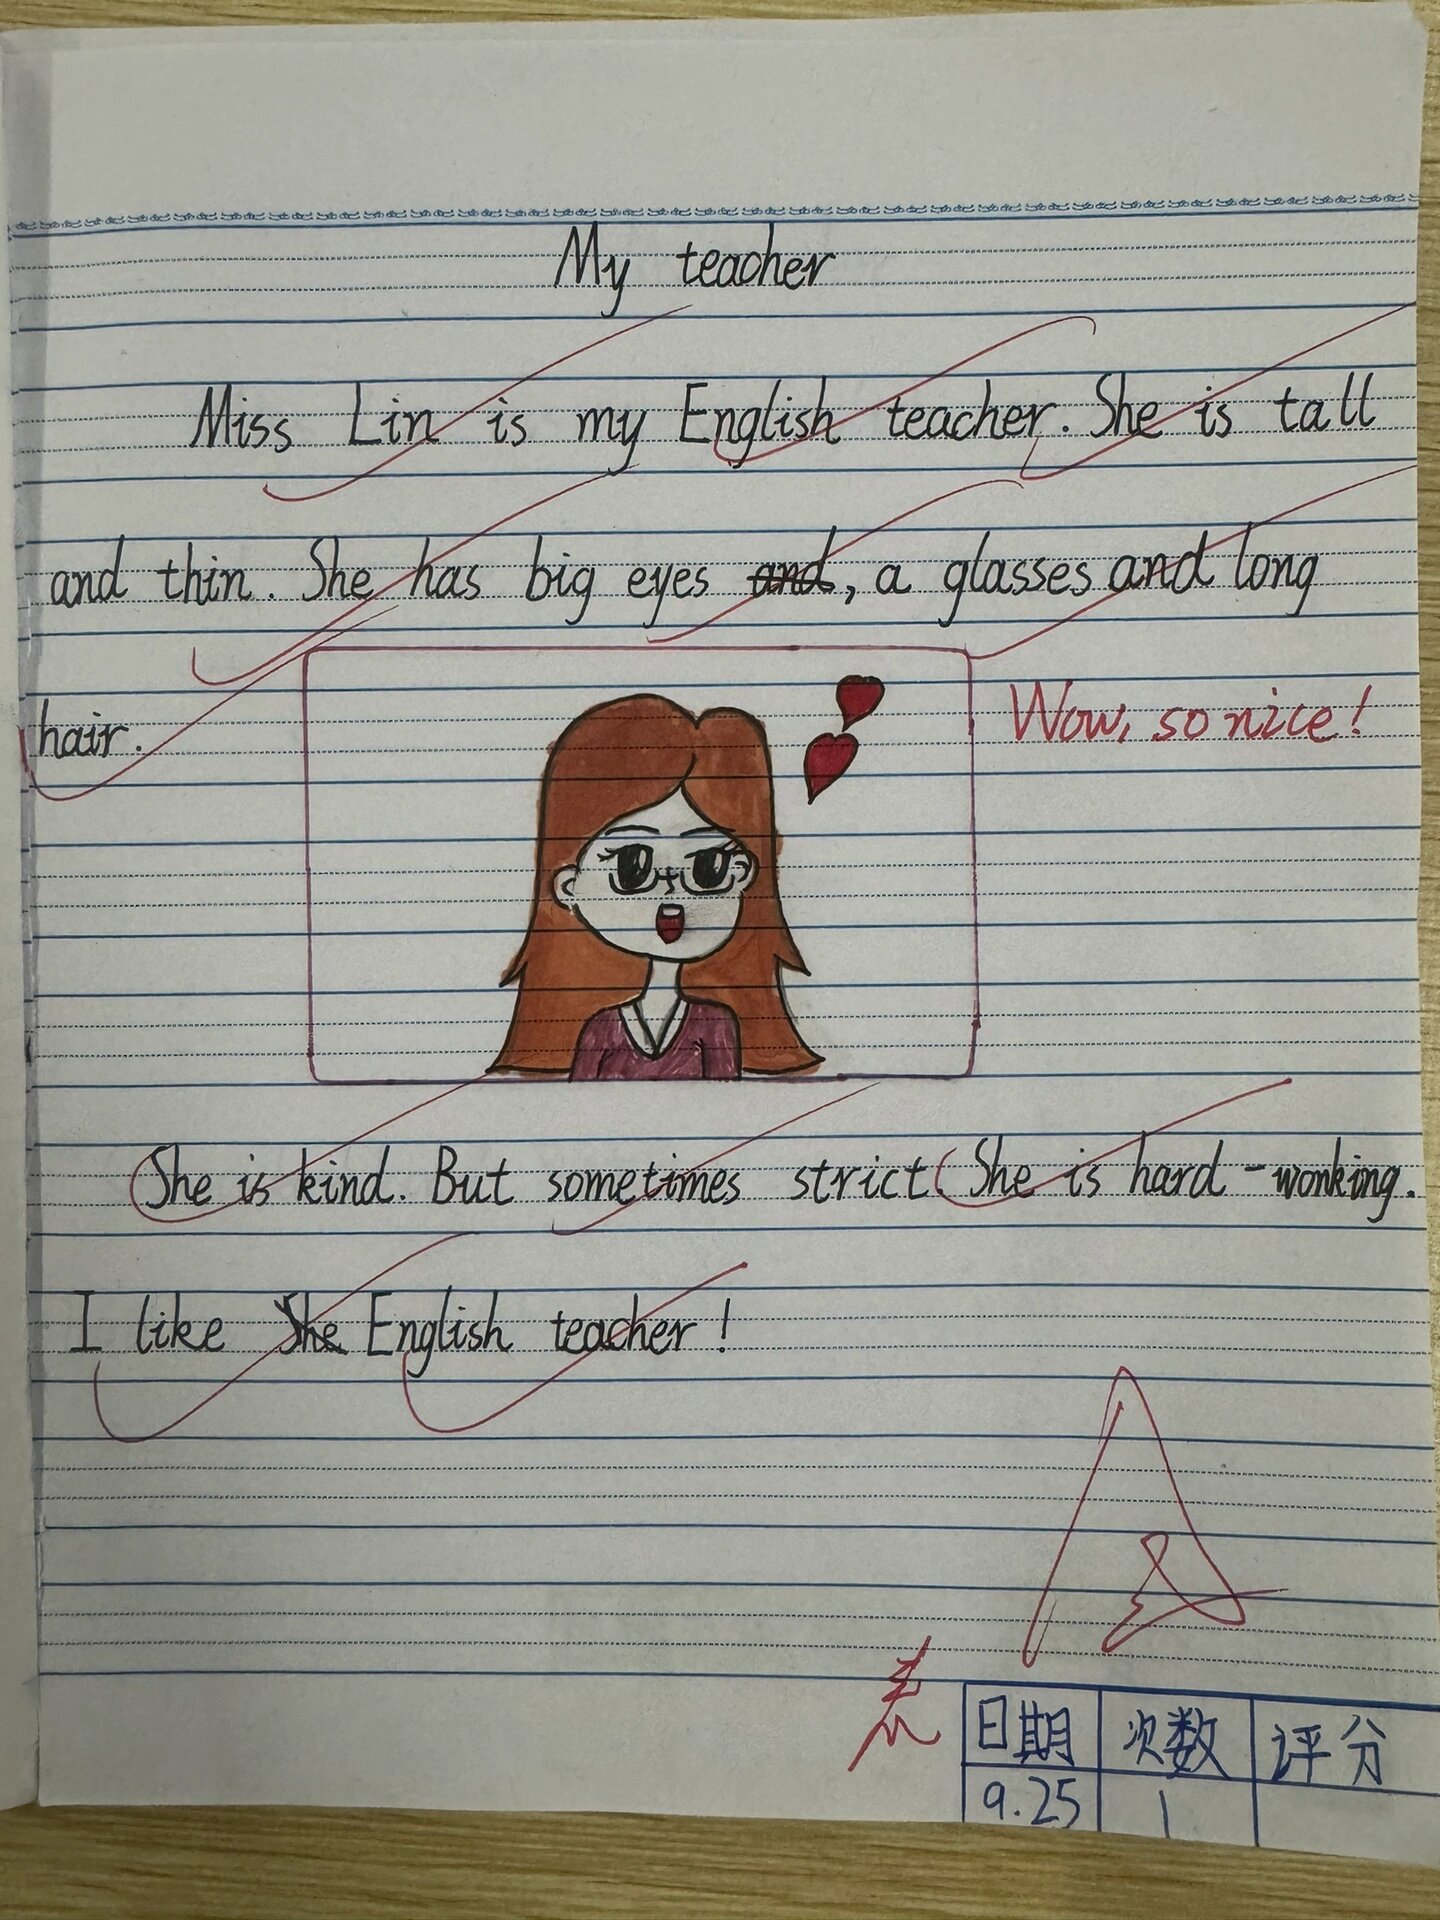 My teacher
Miss Lin is my English teacher. She is tall
and thin. She has big eyes and, a glasses and long
hair.
Wow, so nice!
She is kind. But sometimes strict She is hard-wonking.
I like She English teacher!
A
日期 次数 评分
9.25 1